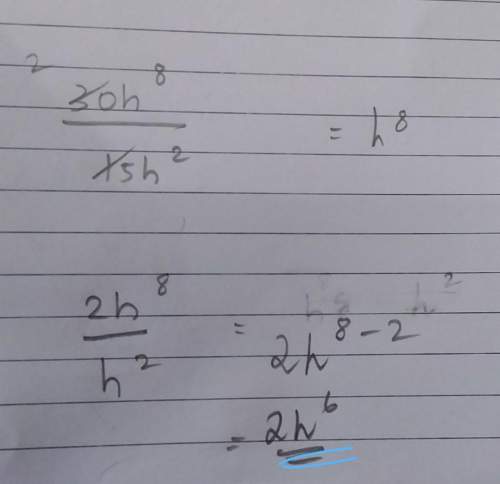 2
30h⁸ / 15h² = h⁸
2h⁸ / h² = 2h⁸⁻²
= 2h⁶